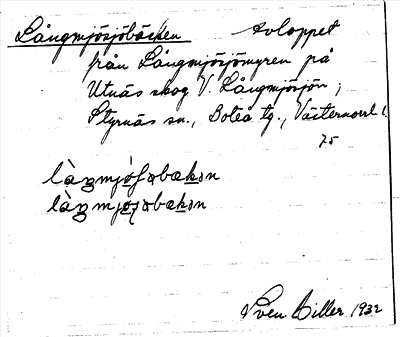 Långmjösjöbäcken Avloppet
från Långmjösjömyren på
Utnäs skog V. Långmjösjön;
Styrnäs sn., Boteå tg., Västernorrl l.
75
làŋmjósøbækən
làŋmjøʃøbækən
Sven Biller 1932